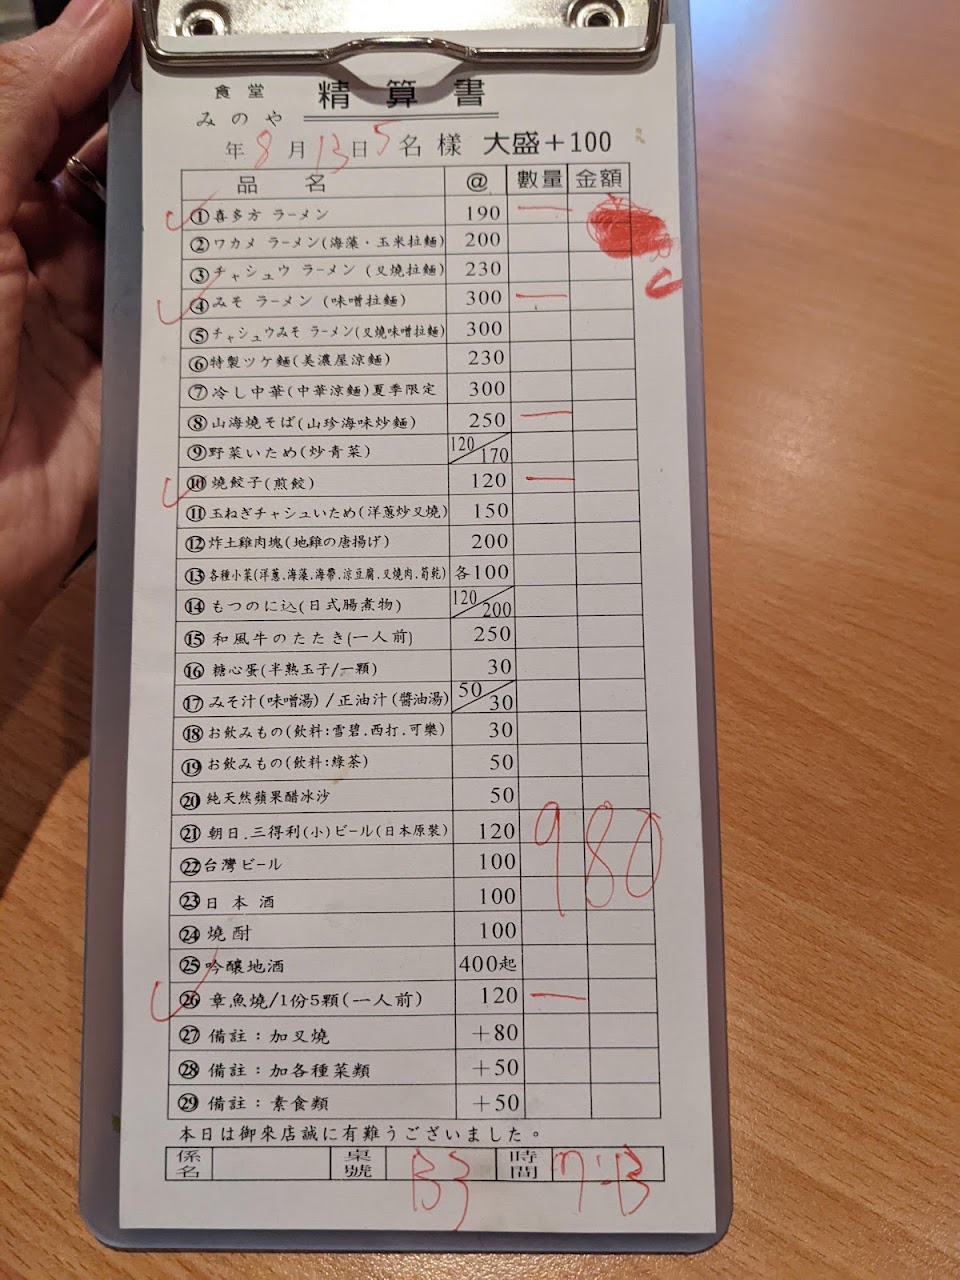 食堂 精算書
みのや
年 8 月 13 日 5 名樣 大盛+100
品名 @ 數量 金額
✓ ①喜多方 ラーメン 190 一
②ワカメ ラーメン(海藻・玉米拉麵) 200
③チャシュウ ラーメン (叉燒拉麵) 230
✓ ④みそ ラーメン (味噌拉麵) 300 一
⑤チャシュウみそ ラーメン(叉燒味噌拉麵) 300
⑥特製ツケ麵(美濃屋涼麵) 230
⑦冷し中華(中華涼麵)夏季限定 300
⑧山海燒そば(山珍海味炒麵) 250 一
⑨野菜いため(炒青菜) 120/170
✓ ⑩燒餃子(煎餃) 120 一
⑪玉ねぎチャシュいため(洋蔥炒叉燒) 150
⑫炸土雞肉塊(地雞の唐揚げ) 200
⑬各種小菜(洋蔥.海藻.海帶.涼豆腐.叉燒肉.筍乾) 各100
⑭もつのに込(日式腸煮物) 120/200
⑮和風牛のたたき(一人前) 250
⑯糖心蛋(半熟玉子/一顆) 30
⑰みそ汁(味噌湯)/正油汁(醬油湯) 50/30
⑱お飲みもの(飲料:雪碧.西打.可樂) 30
⑲お飲みもの(飲料:綠茶) 50
⑳純天然蘋果醋冰沙 50
㉑朝日.三得利(小)ビール(日本原裝) 120
980
㉒台灣ビール 100
㉓日本酒 100
㉔燒酎 100
㉕吟釀地酒 400起
✓ ㉖章魚燒/1份5顆(一人前) 120 一
㉗備註:加叉燒 +80
㉘備註:加各種菜類 +50
㉙備註:素食類 +50
本日は御來店誠に有難うございました。
係名 桌號 B3 時間 7:13